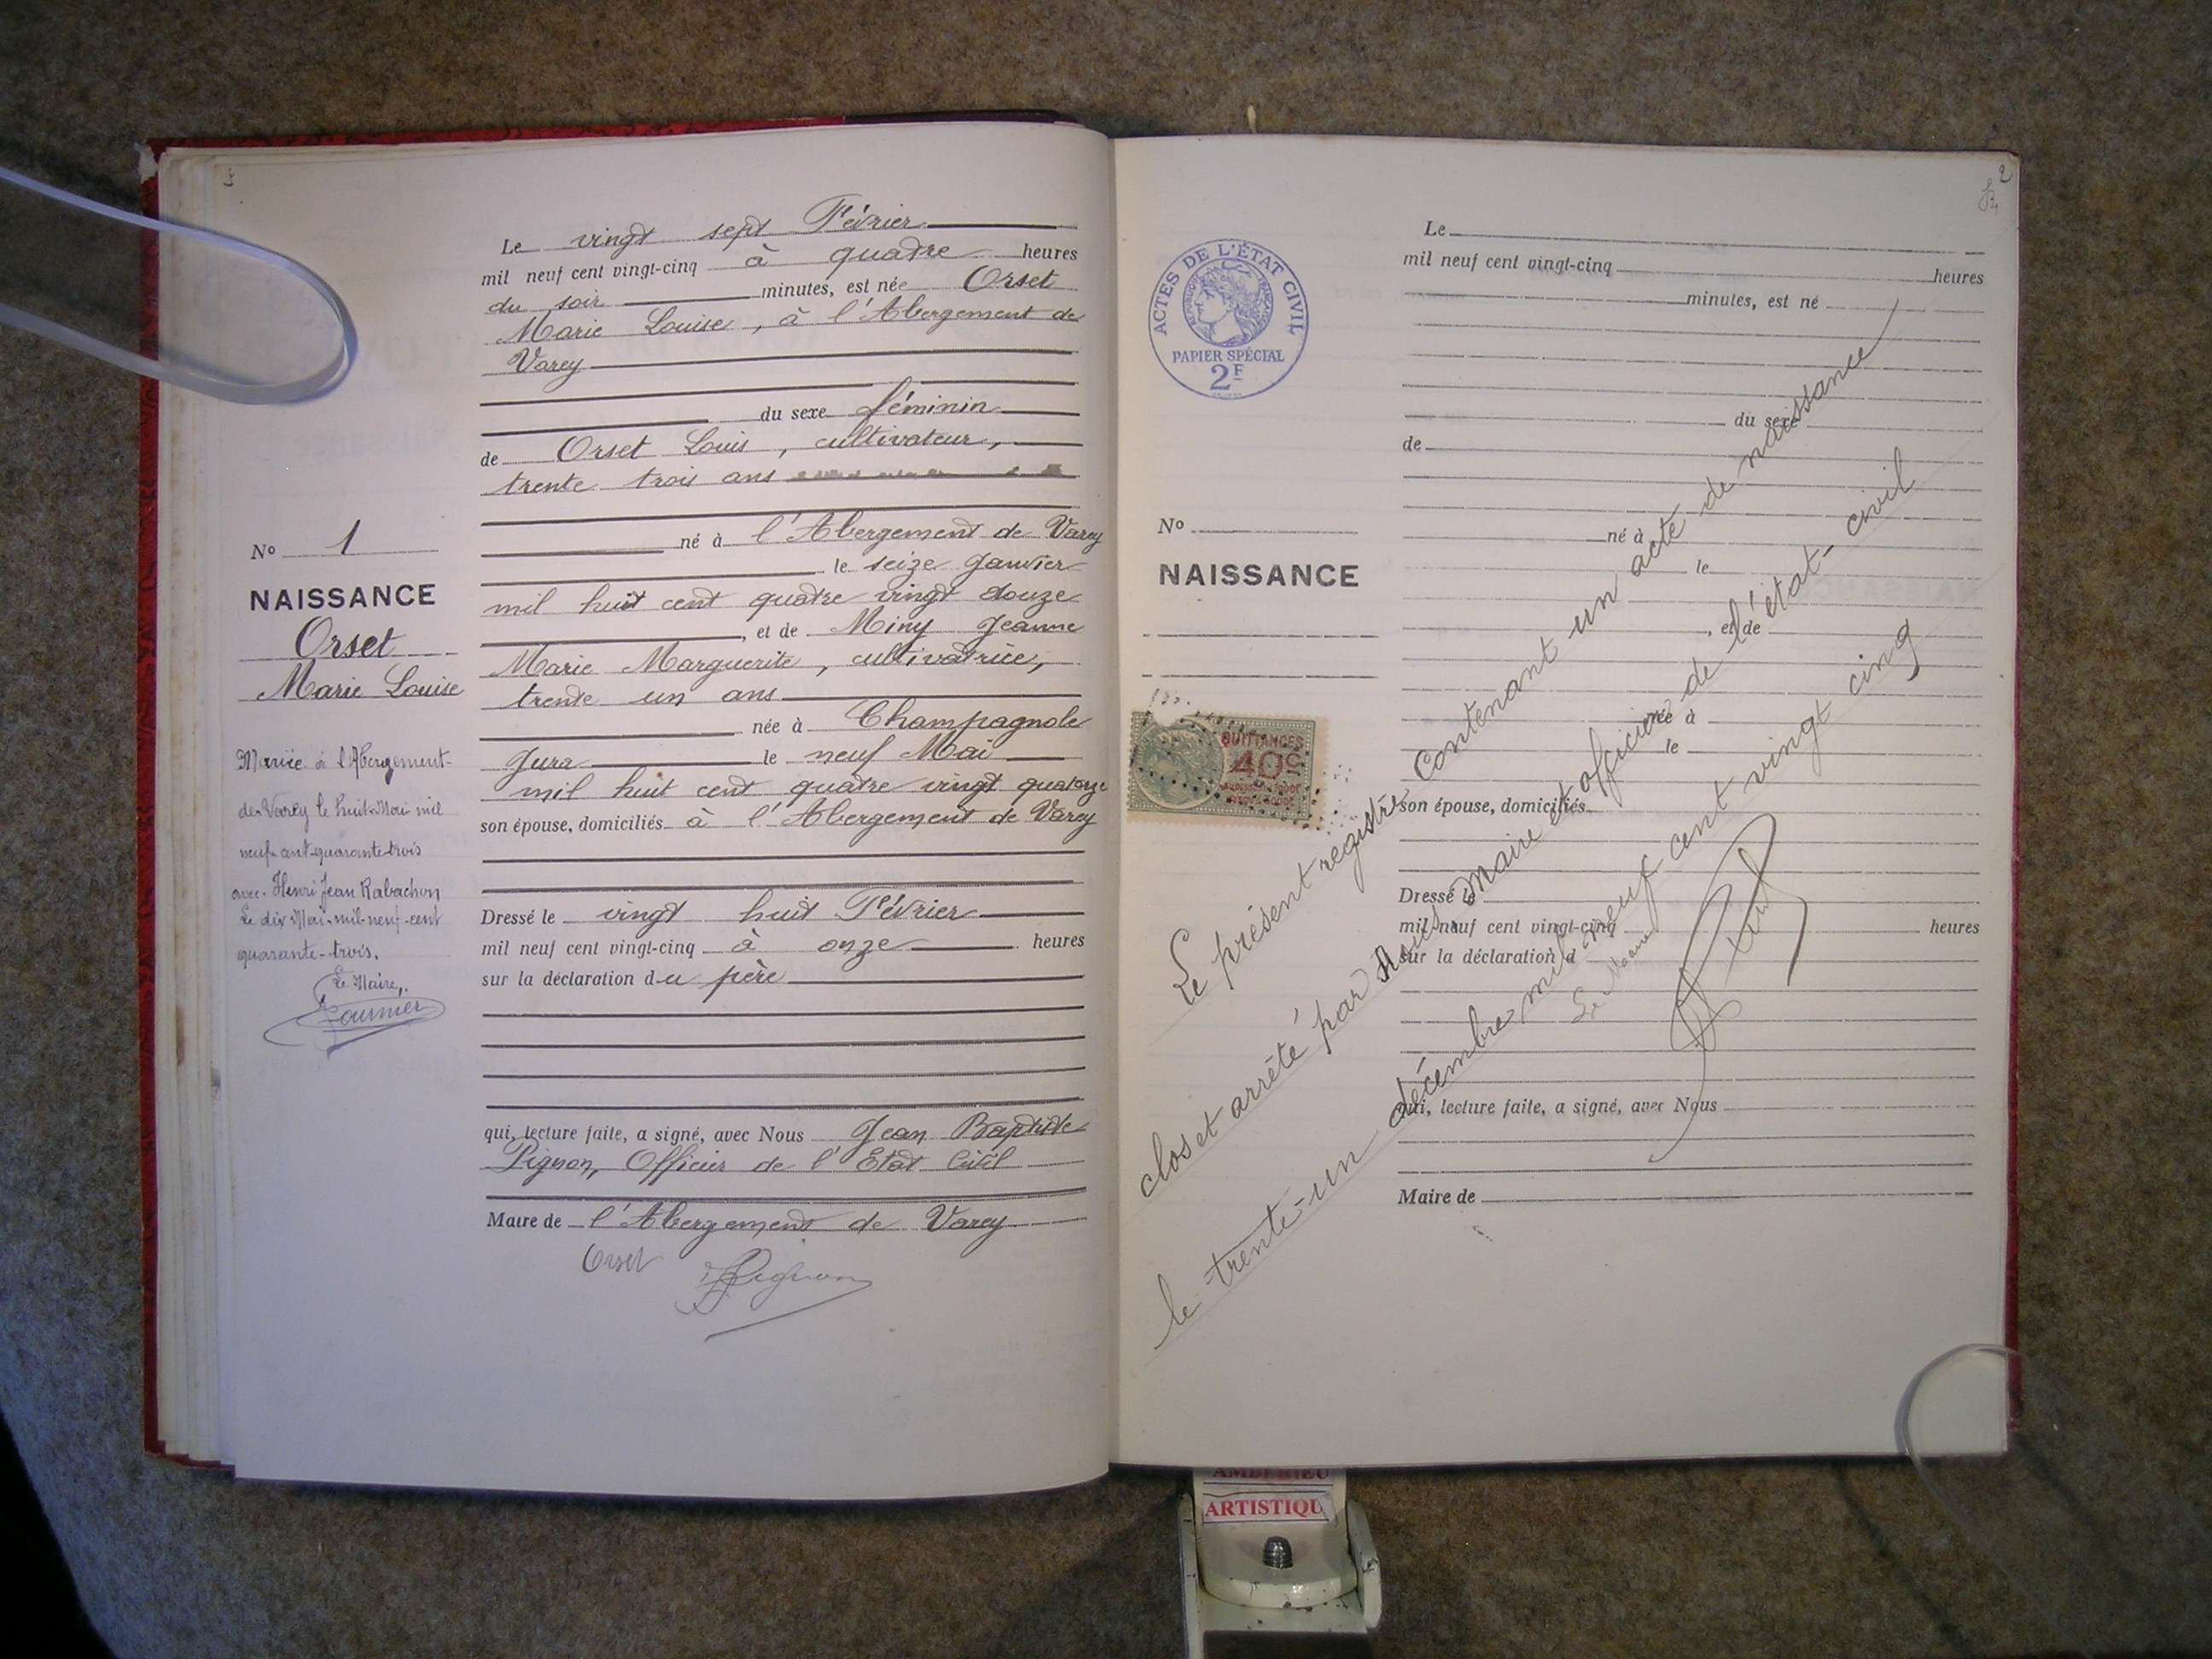 Le vingt sept Février
mil neuf cent vingt-cinq à quatre heures
du soir minutes, est née Orset
Marie Louise, à l'Abergement de
Varey
du sexe féminin
de Orset Louis, cultivateur,
trente trois ans
né à l'Abergement de Varey
le seize Janvier
mil huit cent quatre vingt douze
, et de Miny Jeanne
Marie Marguerite, cultivatrice,
trente un ans
née à Champagnole
Jura le neuf Mai
mil huit cent quatre vingt quatorze
son épouse, domiciliés à l'Abergement de Varey
Dressé le vingt huit Février
mil neuf cent vingt-cinq à onze heures
sur la déclaration du père
qui, lecture faite, a signé, avec Nous Jean Baptiste
Pignon, Officier de l'Etat Civil
Maire de l'Abergement de Varey
Orset Pignon
No 1
NAISSANCE
Orset
Marie Louise
Mariée à l'Abergement-
de-Varey le huit Mai mil
neuf-cent-quarante-trois
avec Henri Jean Rabachon
Le dix Mai mil-neuf-cent
quarante-trois.
Le Maire,
Fournier
2
ACTES DE L'ÉTAT CIVIL
RÉPUBLIQUE FRANÇAISE
PAPIER SPÉCIAL
2F
No
NAISSANCE
QUITTANCES
40c
Le
mil neuf cent vingt-cinq heures
minutes, est né
du sexe
de
né à
le
, et de
née à
le
son épouse, domiciliés
Dressé le
mil neuf cent vingt-cinq heures
sur la déclaration d
qui, lecture faite, a signé, avec Nous
Maire de
Le présent registre contenant un acte de naissance
clos et arrêté par Nous Maire et officier de l'état-civil
le trente-un décembre mil neuf cent vingt cinq
Le Maire
AMBERIEU
ARTISTIQU